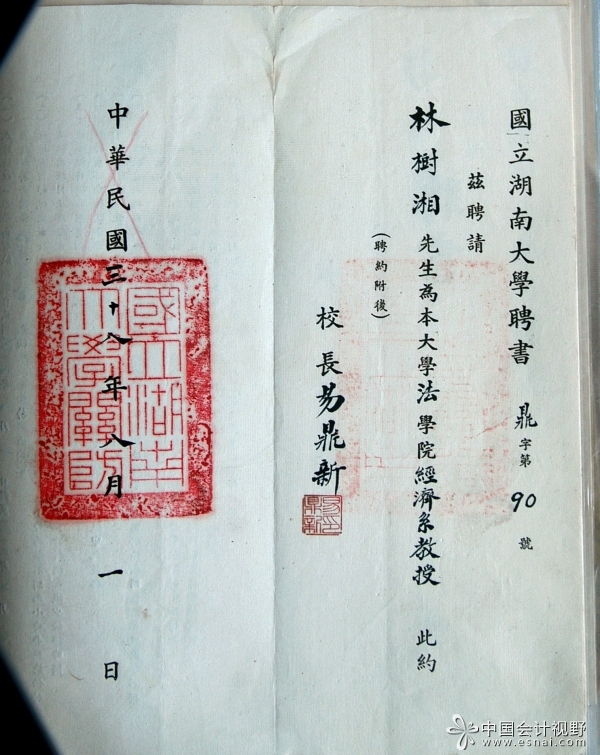 國立湖南大學聘書 鼎字第90號
茲聘請
林樹湘先生為本大學法學院經濟系教授 此約
(聘約附後)
校長易鼎新
易鼎新印
中華民國三十八年八月一日
國立湖南大學關防
中国会计视野
www.esnai.com